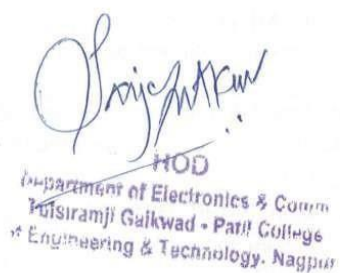 HOD
Department of Electronics & Comm
Tulsiramji Gaikwad - Patil College
of Engineering & Technology. Nagpur